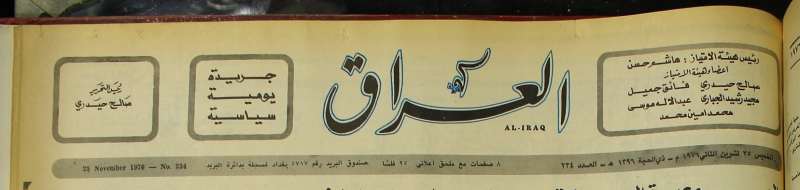 رئيس هيئة الامتياز : هاشم حسن
اعضاء هيئة الامتياز
صالح حيدري فائق جميل
مجيد رشيد الجباري عبدالاله موسى
محمد امين محمد
العراق
AL-IRAQ
جريدة
يومية
سياسية
صالح حيدري
الخميس ٢٥ تشرين الثاني ١٩٧٦ م - ذي الحجة ١٣٩٦ هـ - العدد ٢٣٤
٨ صفحات مع ملحق اعلاني ٢٥ فلسا
صندوق البريد رقم ٥٧١٧ بغداد مسجلة بدائرة البريد
November 1976 — No. 234